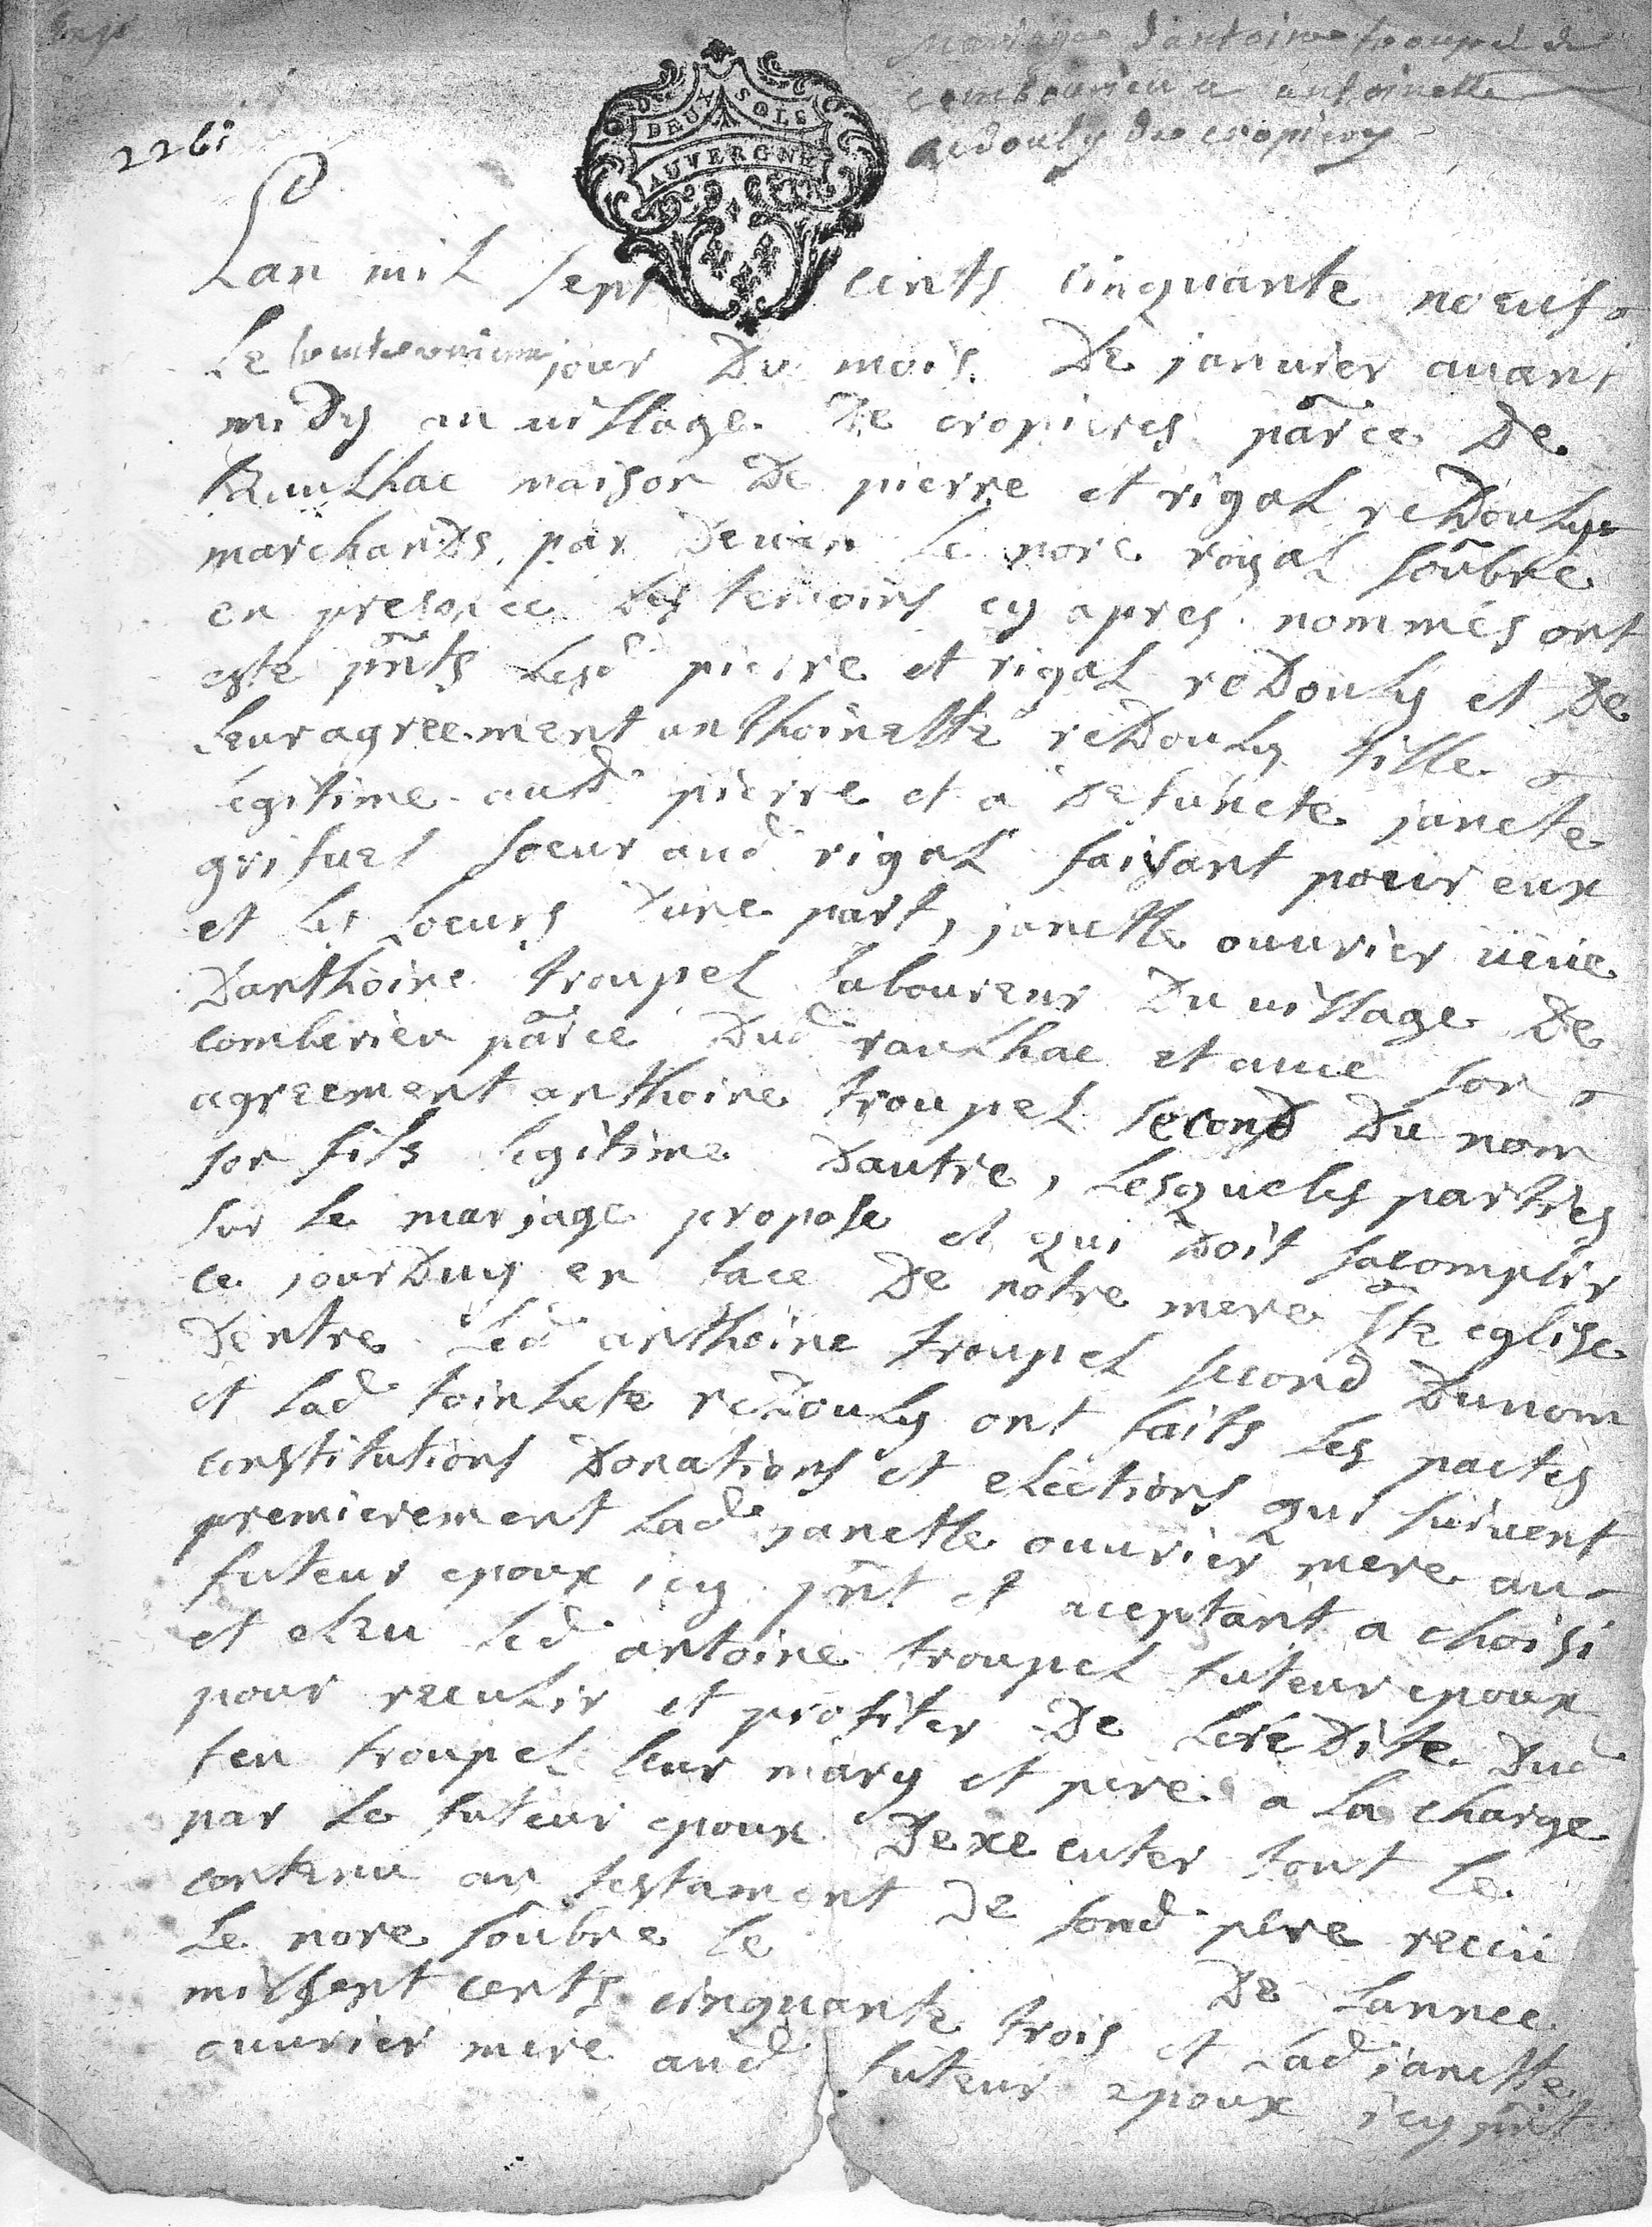 mariage dantoine troupel de
comberieu a antoinette
redouly de cropieres
226
DEUX SOLS
AUVERGNE
Lan mil sept cents cinquante noeuf
Le jour Du mois De janvier avant
midy au village De cropieres parce De
Raulhac maison De pierre et rigal reDouly
marchands par Devan Le nore royal soubne
en presence Des temoins cy apres nommés ont
este pnts Lesd pierre et rigal reDouly et De
Leur agreement anthoinette reDouly fille
égitime aud pierre et a Defuncte janete
grifuel soeur aud rigal faisant pour eux
et les soeurs Dune part, janette ouvrier veuve
Danthoine troupel laboureur Du village De
comberieu parce Dud raulhac et avec son
agreement anthoine troupel second Du nom
son fils legitime Dautre, Lesqueles parties
sur le mariage propose et qui Doit sacomplir
ce jourDuy en face De nôtre mere ste eglise
Dentre Led anthoine troupel second Dunom
et Lad toinhete reDouly ont faits Les pactes
constitutions Donations et elections qui suivent
premierement Lad janette ouvrier mere au
futeur epoux icy pnt et aceptant a choisi
et eleu Led antoine troupel futeur epoux
pour reculir et profiter De Leredite Dud
feu troupel leur mary et pere a la charge
par le futeur epoux Dexecuter tout le
contenu au testament De sond pere receu
Le nore soubne le De Lannee
mil sept cents cinquante trois et Lad janette
ouvrier mere aud futeur epoux icy pnt